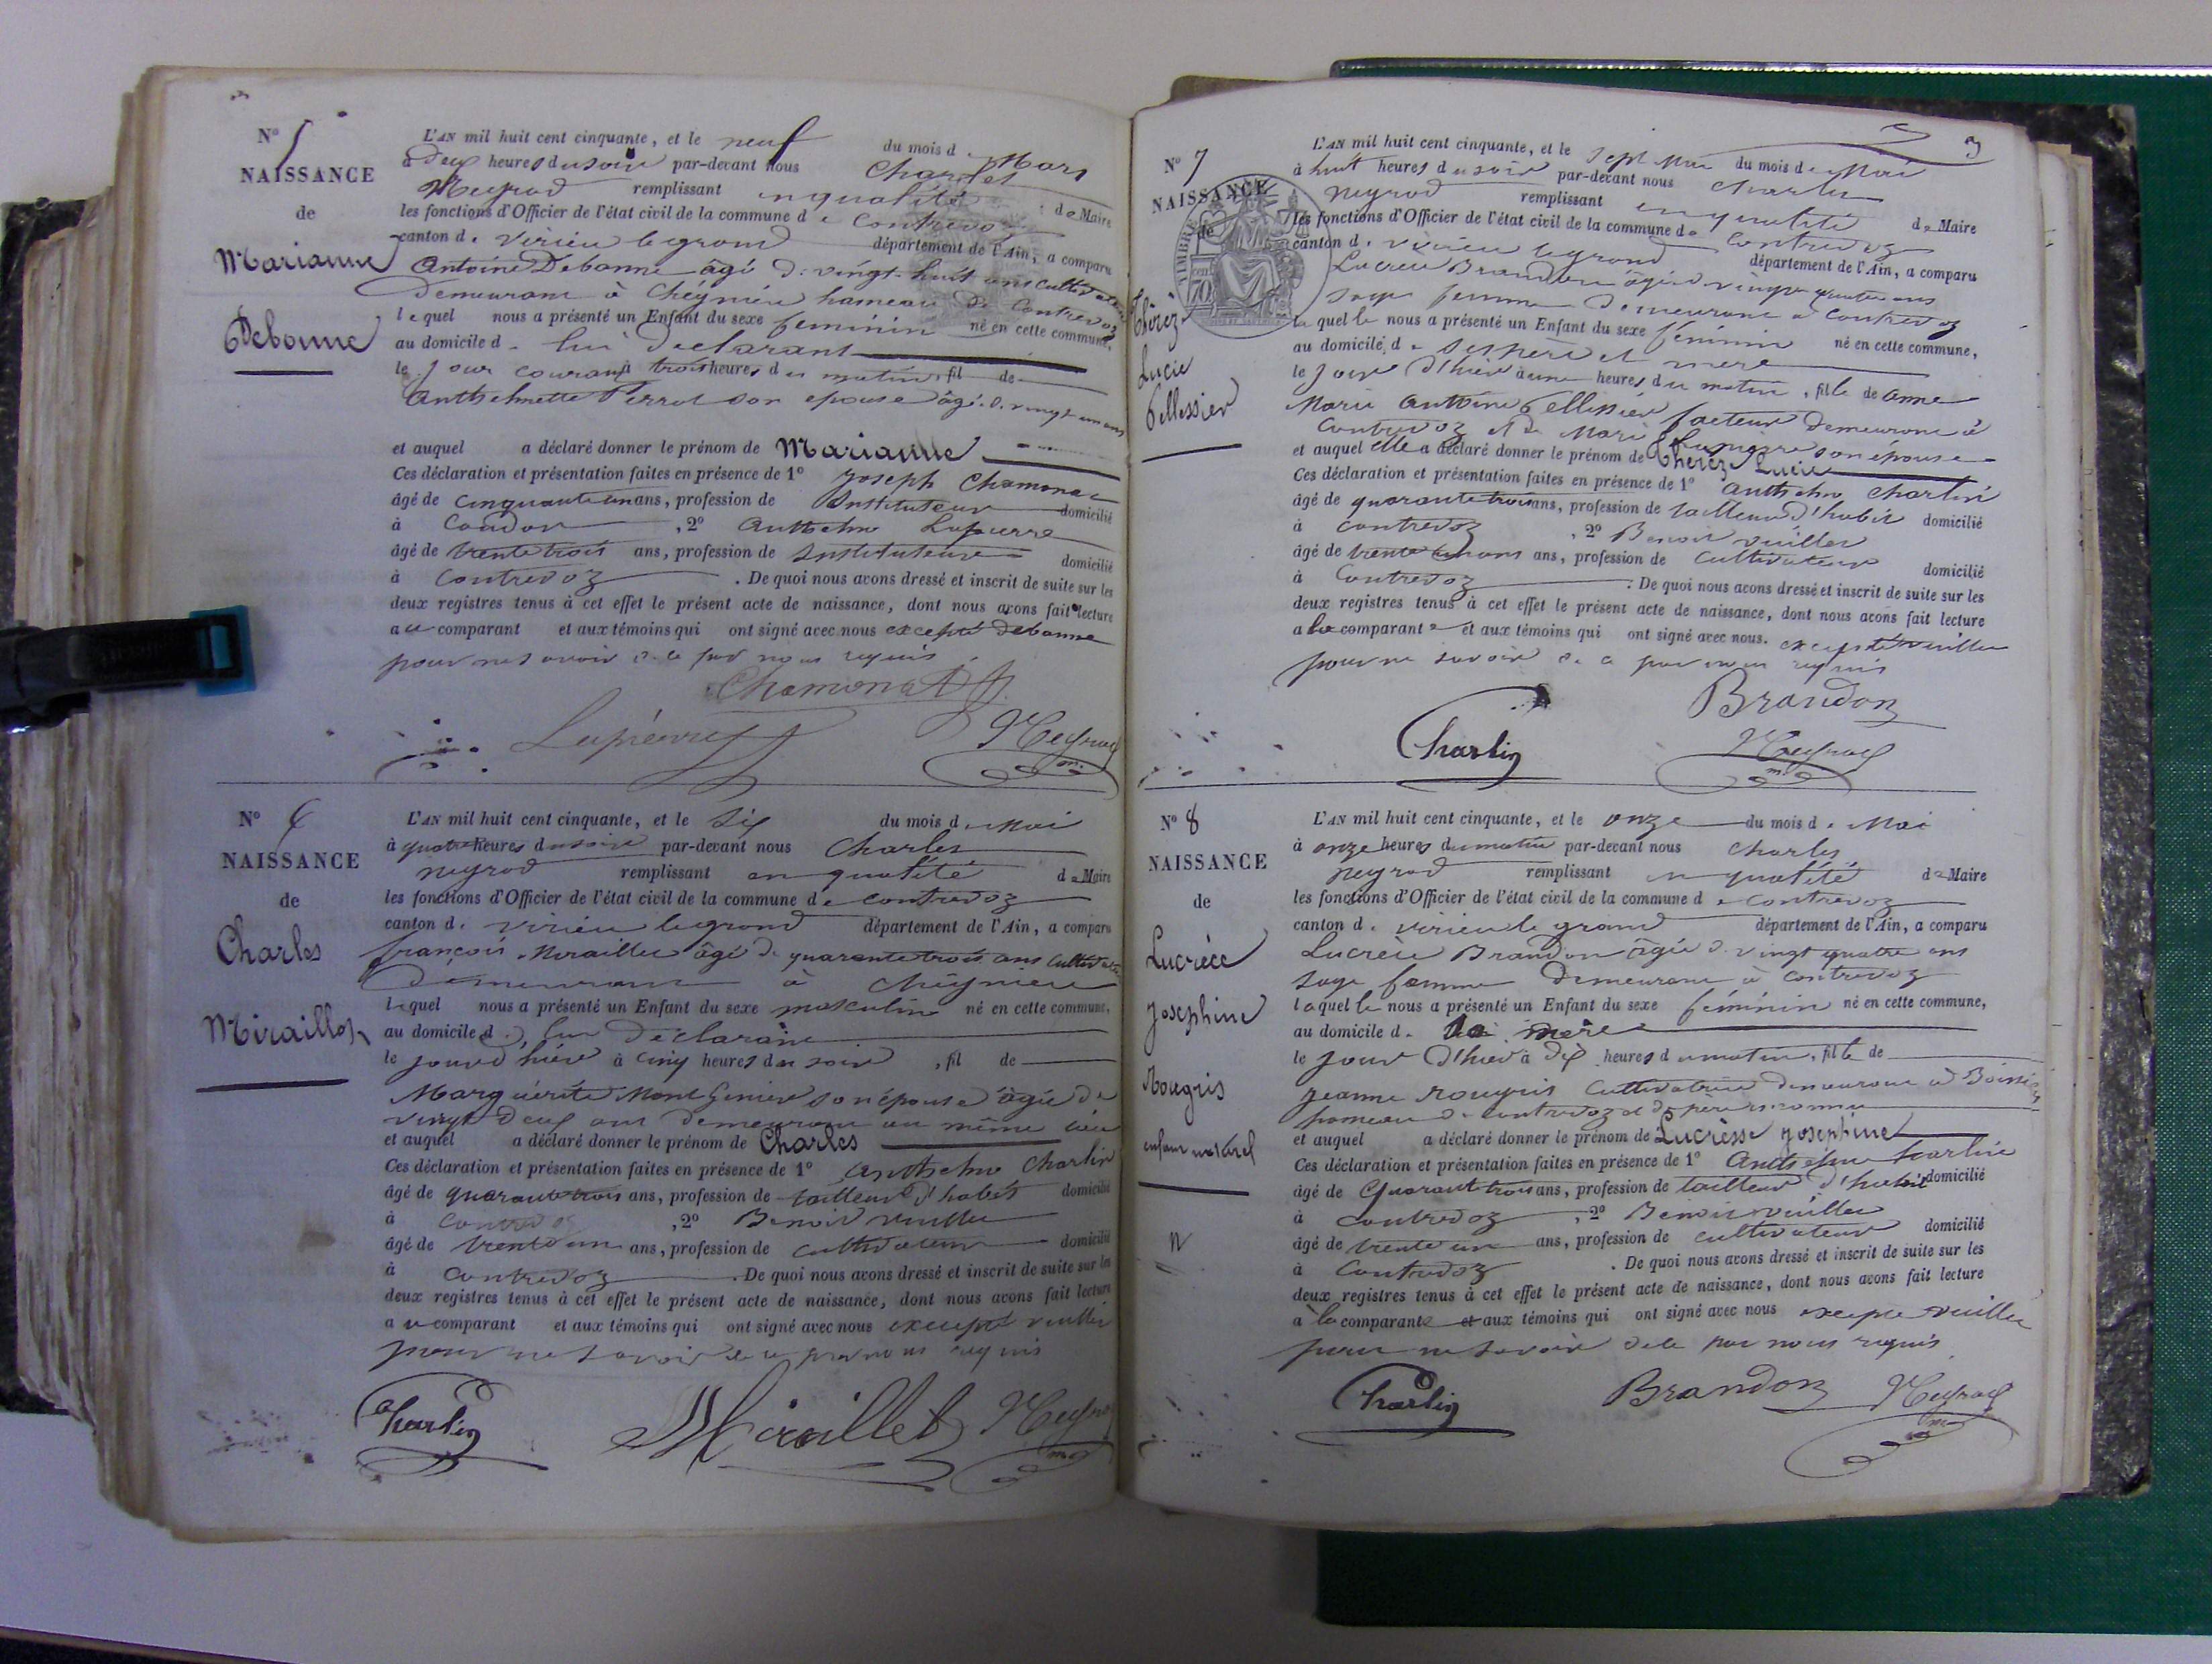 N° 5
NAISSANCE
de
Marianne
Debonne
L'AN mil huit cent cinquante, et le neuf du mois d Mars
à deux heures du soir par-devant nous Charles
Neyrod remplissant en qualité de Maire
les fonctions d'Officier de l'état civil de la commune de Contrevoz
canton de virieu legrand département de l'Ain, a comparu
Antoine Debonne âgé de vingt-huit ans cultivateur
demeurant à Chégnieu hameau de Contrevoz
lequel nous a présenté un Enfant du sexe féminin né en cette commune,
au domicile de lui déclarant
le jour courant à trois heures du matin, fil de
Anthelmette Perrot son épouse âgée de vingt un ans
et auquel a déclaré donner le prénom de Marianne
Ces déclaration et présentation faites en présence de 1° Joseph Chamonat
âgé de cinquante un ans, profession de Instituteur domicilié
à Condon , 2° Anthelme Lapierre
âgé de trente trois ans, profession de Instituteur domicilié
à Contrevoz . De quoi nous avons dressé et inscrit de suite sur les
deux registres tenus à cet effet le présent acte de naissance, dont nous avons fait lecture
au comparant et aux témoins qui ont signé avec nous excepté debonne
pour ne savoir de ce par nous requis
Chamonat
Lapierre Neyrod
N° 6
NAISSANCE
de
Charles
Miraillet
L'AN mil huit cent cinquante, et le six du mois de Mai
à quatre heures du soir par-devant nous Charles
neyrod remplissant en qualité de Maire
les fonctions d'Officier de l'état civil de la commune de contrevoz
canton de virieu legrand département de l'Ain, a comparu
françois Miraillet âgé de quarante trois ans cultivateur
demeurant à chégnieu
lequel nous a présenté un Enfant du sexe masculin né en cette commune,
au domicile de lui déclarant
le jour d'hier à cinq heures du soir , fil de
Marguérite Mont Genier son épouse âgée de
vingt deux ans demeurant au même lieu
et auquel a déclaré donner le prénom de Charles
Ces déclaration et présentation faites en présence de 1° Anthelme Charlin
âgé de quarante trois ans, profession de tailleur d'habit domicilié
à Contrevoz , 2° Benoit vuillet
âgé de trente un ans, profession de cultivateur domicilié
à Contrevoz . De quoi nous avons dressé et inscrit de suite sur les
deux registres tenus à cet effet le présent acte de naissance, dont nous avons fait lecture
au comparant et aux témoins qui ont signé avec nous excepté vuillet
pour ne savoir de ce par nous requis
Charlin Miraillet Neyrod
3
N° 7
NAISSANCE
de
TIMBRE
70
Thérèz
Lucie
Pellissier
L'AN mil huit cent cinquante, et le sept Mai du mois de Mai
à huit heures du soir par-devant nous Charles
neyrod remplissant en qualité de Maire
les fonctions d'Officier de l'état civil de la commune de Contrevoz
canton de virieu legrand département de l'Ain, a comparu
Lucrèce Brandon âgée de vingt quatre ans
sage femme demeurant à Contrevoz
laquelle nous a présenté un Enfant du sexe féminin né en cette commune,
au domicile de ses père et mere
le jour d'hier à une heures du matin , fille de anne
Marie Antoine Pellissier facteur demeurant à
Contrevoz et de Marie son épouse
et auquel elle a déclaré donner le prénom de Thérèz Lucie
Ces déclaration et présentation faites en présence de 1° Anthelme Charlin
âgé de quarante trois ans, profession de tailleur d'habit domicilié
à Contrevoz , 2° Benoit vuillet
âgé de trente un ans ans, profession de cultivateur domicilié
à Contrevoz . De quoi nous avons dressé et inscrit de suite sur les
deux registres tenus à cet effet le présent acte de naissance, dont nous avons fait lecture
a la comparante et aux témoins qui ont signé avec nous. excepté vuillet
pour ne savoir de ce par nous requis
Brandon
Charlin Neyrod
N° 8
NAISSANCE
de
Lucrèce
Josephine
Rougris
enfant naturel
L'AN mil huit cent cinquante, et le onze du mois de Mai
à onze heures du matin par-devant nous Charles
neyrod remplissant en qualité de Maire
les fonctions d'Officier de l'état civil de la commune de contrevoz
canton de virieu le grand département de l'Ain, a comparu
Lucrèce Brandon âgée de vingt quatre ans
sage femme demeurant à contrevoz
laquelle nous a présenté un Enfant du sexe féminin né en cette commune,
au domicile de la mère
le jour d'hier à dix heures du matin, fille de
jeanne rougris cultivatrice demeurant à
hameau de contrevoz et de père inconnu
et auquel a déclaré donner le prénom de Lucrèsse Josephine
Ces déclaration et présentation faites en présence de 1° Anthelme Charlin
âgé de Quarante trois ans, profession de tailleur d'habit domicilié
à Contrevoz , 2° Benoit vuillet
âgé de trente un ans, profession de cultivateur domicilié
à Contrevoz . De quoi nous avons dressé et inscrit de suite sur les
deux registres tenus à cet effet le présent acte de naissance, dont nous avons fait lecture
à la comparante et aux témoins qui ont signé avec nous excepté vuillet
pour ne savoir de ce par nous requis
Charlin Brandon Neyrod